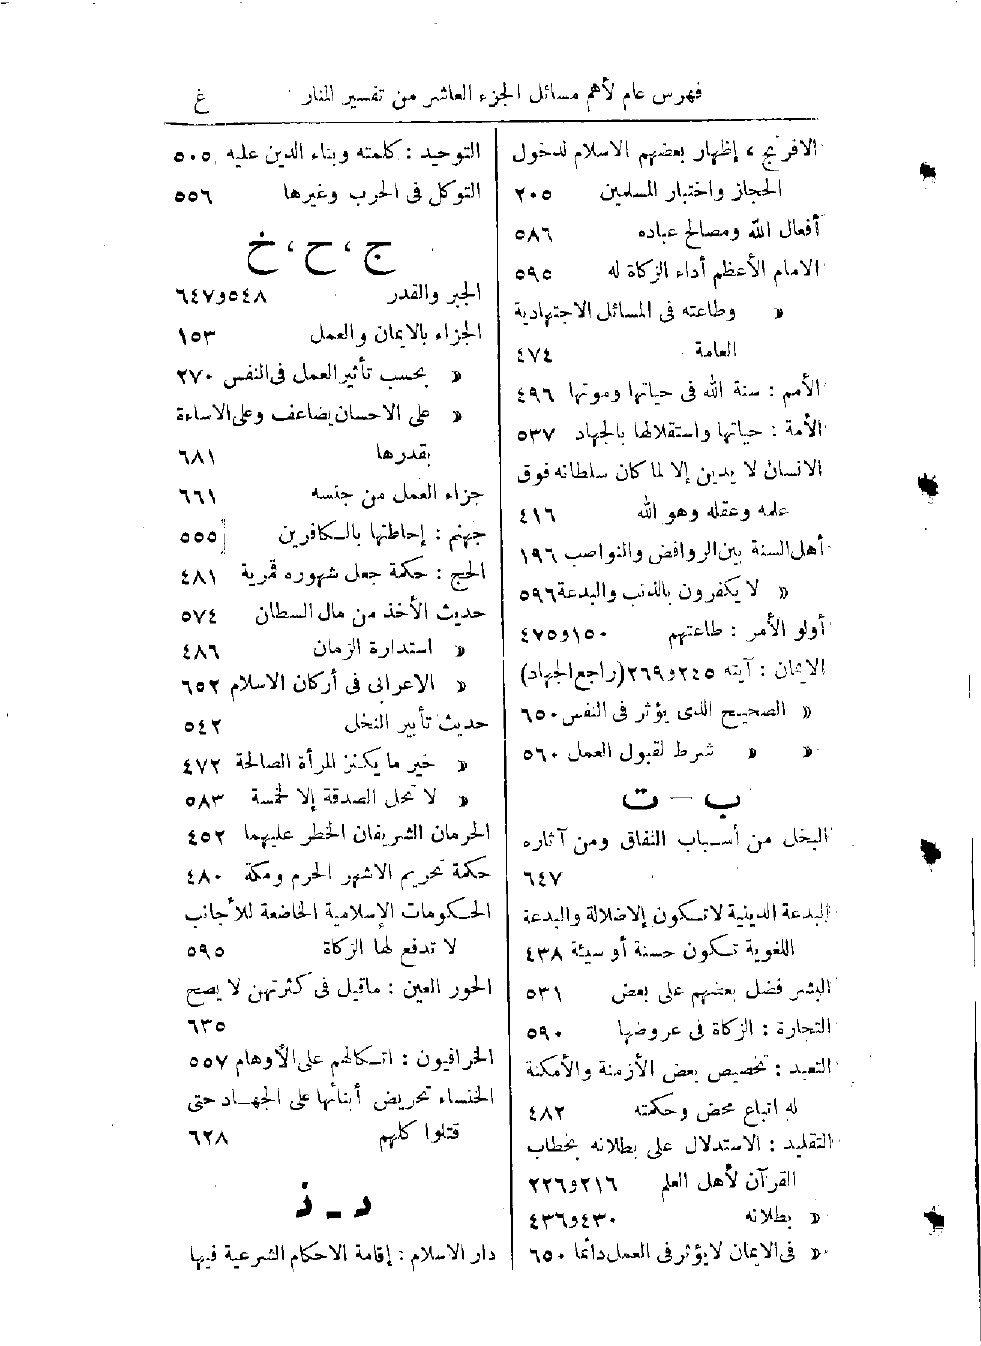 فهرس عام لأهم مسائل الجزء العاشر من تفسير المنار
غ
الافرنج ، إظهار بعضهم الاسلام لدخول
الحجاز واختبار المسلمين ٢٠٥
أفعال الله ومصالح عباده ٥٨٦
الامام الأعظم أداء الزكاة له ٥٩٥
« وطاعته فى المسائل الاجتهادية
العامة ٤٧٤
الأمم : سنة الله فى حياتها وموتها ٤٩٦
الأمة : حياتها واستقلالها بالجهاد ٥٣٧
الانسان لا يدين إلا لما كان سلطانه فوق
علمه وعقله وهو الله ٤١٦
أهل السنة بين الروافض والنواصب ١٩٦
« لا يكفرون بالذنب والبدعة ٥٩٦
أولو الأمر : طاعتهم ١٥٠و٤٧٥
الايمان : آيته ٢٤٥و٢٦٩(راجع الجهاد)
« الصحيح الذى يؤثر فى النفس ٦٥٠
« « شرط لقبول العمل ٥٦٠
ب – ت
البخل من أسباب النفاق ومن آثاره
٦٤٧
البدعة الدينية لا تكون إلا ضلالة والبدعة
اللغوية تكون حسنة أو سيئة ٤٣٨
البشر فضل بعضهم على بعض ٥٣١
التجارة : الزكاة فى عروضها ٥٩٠
التعبد : تخصيص بعض الأزمنة والأمكنة
له اتباع محض وحكمته ٤٨٢
التقليد : الاستدلال على بطلانه بخطاب
القرآن لأهل العلم ٢١٦و٢٢٦
« بطلانه ٤٣٠و٤٣٦
« فى الايمان لا يؤثر فى العمل دائما ٦٥٠
التوحيد : كلمته وبناء الدين عليه ٥٠٥
التوكل فى الحرب وغيرها ٥٥٦
ج ، ح ، خ
الجبر والقدر ٥٤٨و٦٤٧
الجزاء بالايمان والعمل ١٥٣
« بحسب تأثير العمل فى النفس ٢٧٠
« على الاحسان يضاعف وعلى الاساءة
بقدرها ٦٨١
جزاء العمل من جنسه ٦٦١
جهنم : إحاطتها بالكافرين ٥٥٥
الحج : حكمة جعل شهوره قمرية ٤٨١
حديث الأخذ من مال السطان ٥٧٤
« استدارة الزمان ٤٨٦
« الاعرابى فى أركان الاسلام ٦٥٢
حديث تأبير النخل ٥٤٢
« خير ما يكنز المرأة الصالحة ٤٧٢
« لا تحل الصدقة إلا لخمسة ٥٨٣
الحرمان الشريفان الخطر عليهما ٤٥٢
حكمة تحريم الاشهر الحرم ومكة ٤٨٠
الحكومات الإسلامية الخاضعة للأجانب
لا تدفع لها الزكاة ٥٩٥
الحور العين : ماقيل فى كثرتهن لا يصح
٦٣٥
الخرافيون : اتكالهم على الأوهام ٥٥٧
الخنساء تحريض أبنائها على الجهاد حتى
قتلوا كلهم ٦٢٨
د – ذ
دار الاسلام : إقامة الاحكام الشرعية فيها